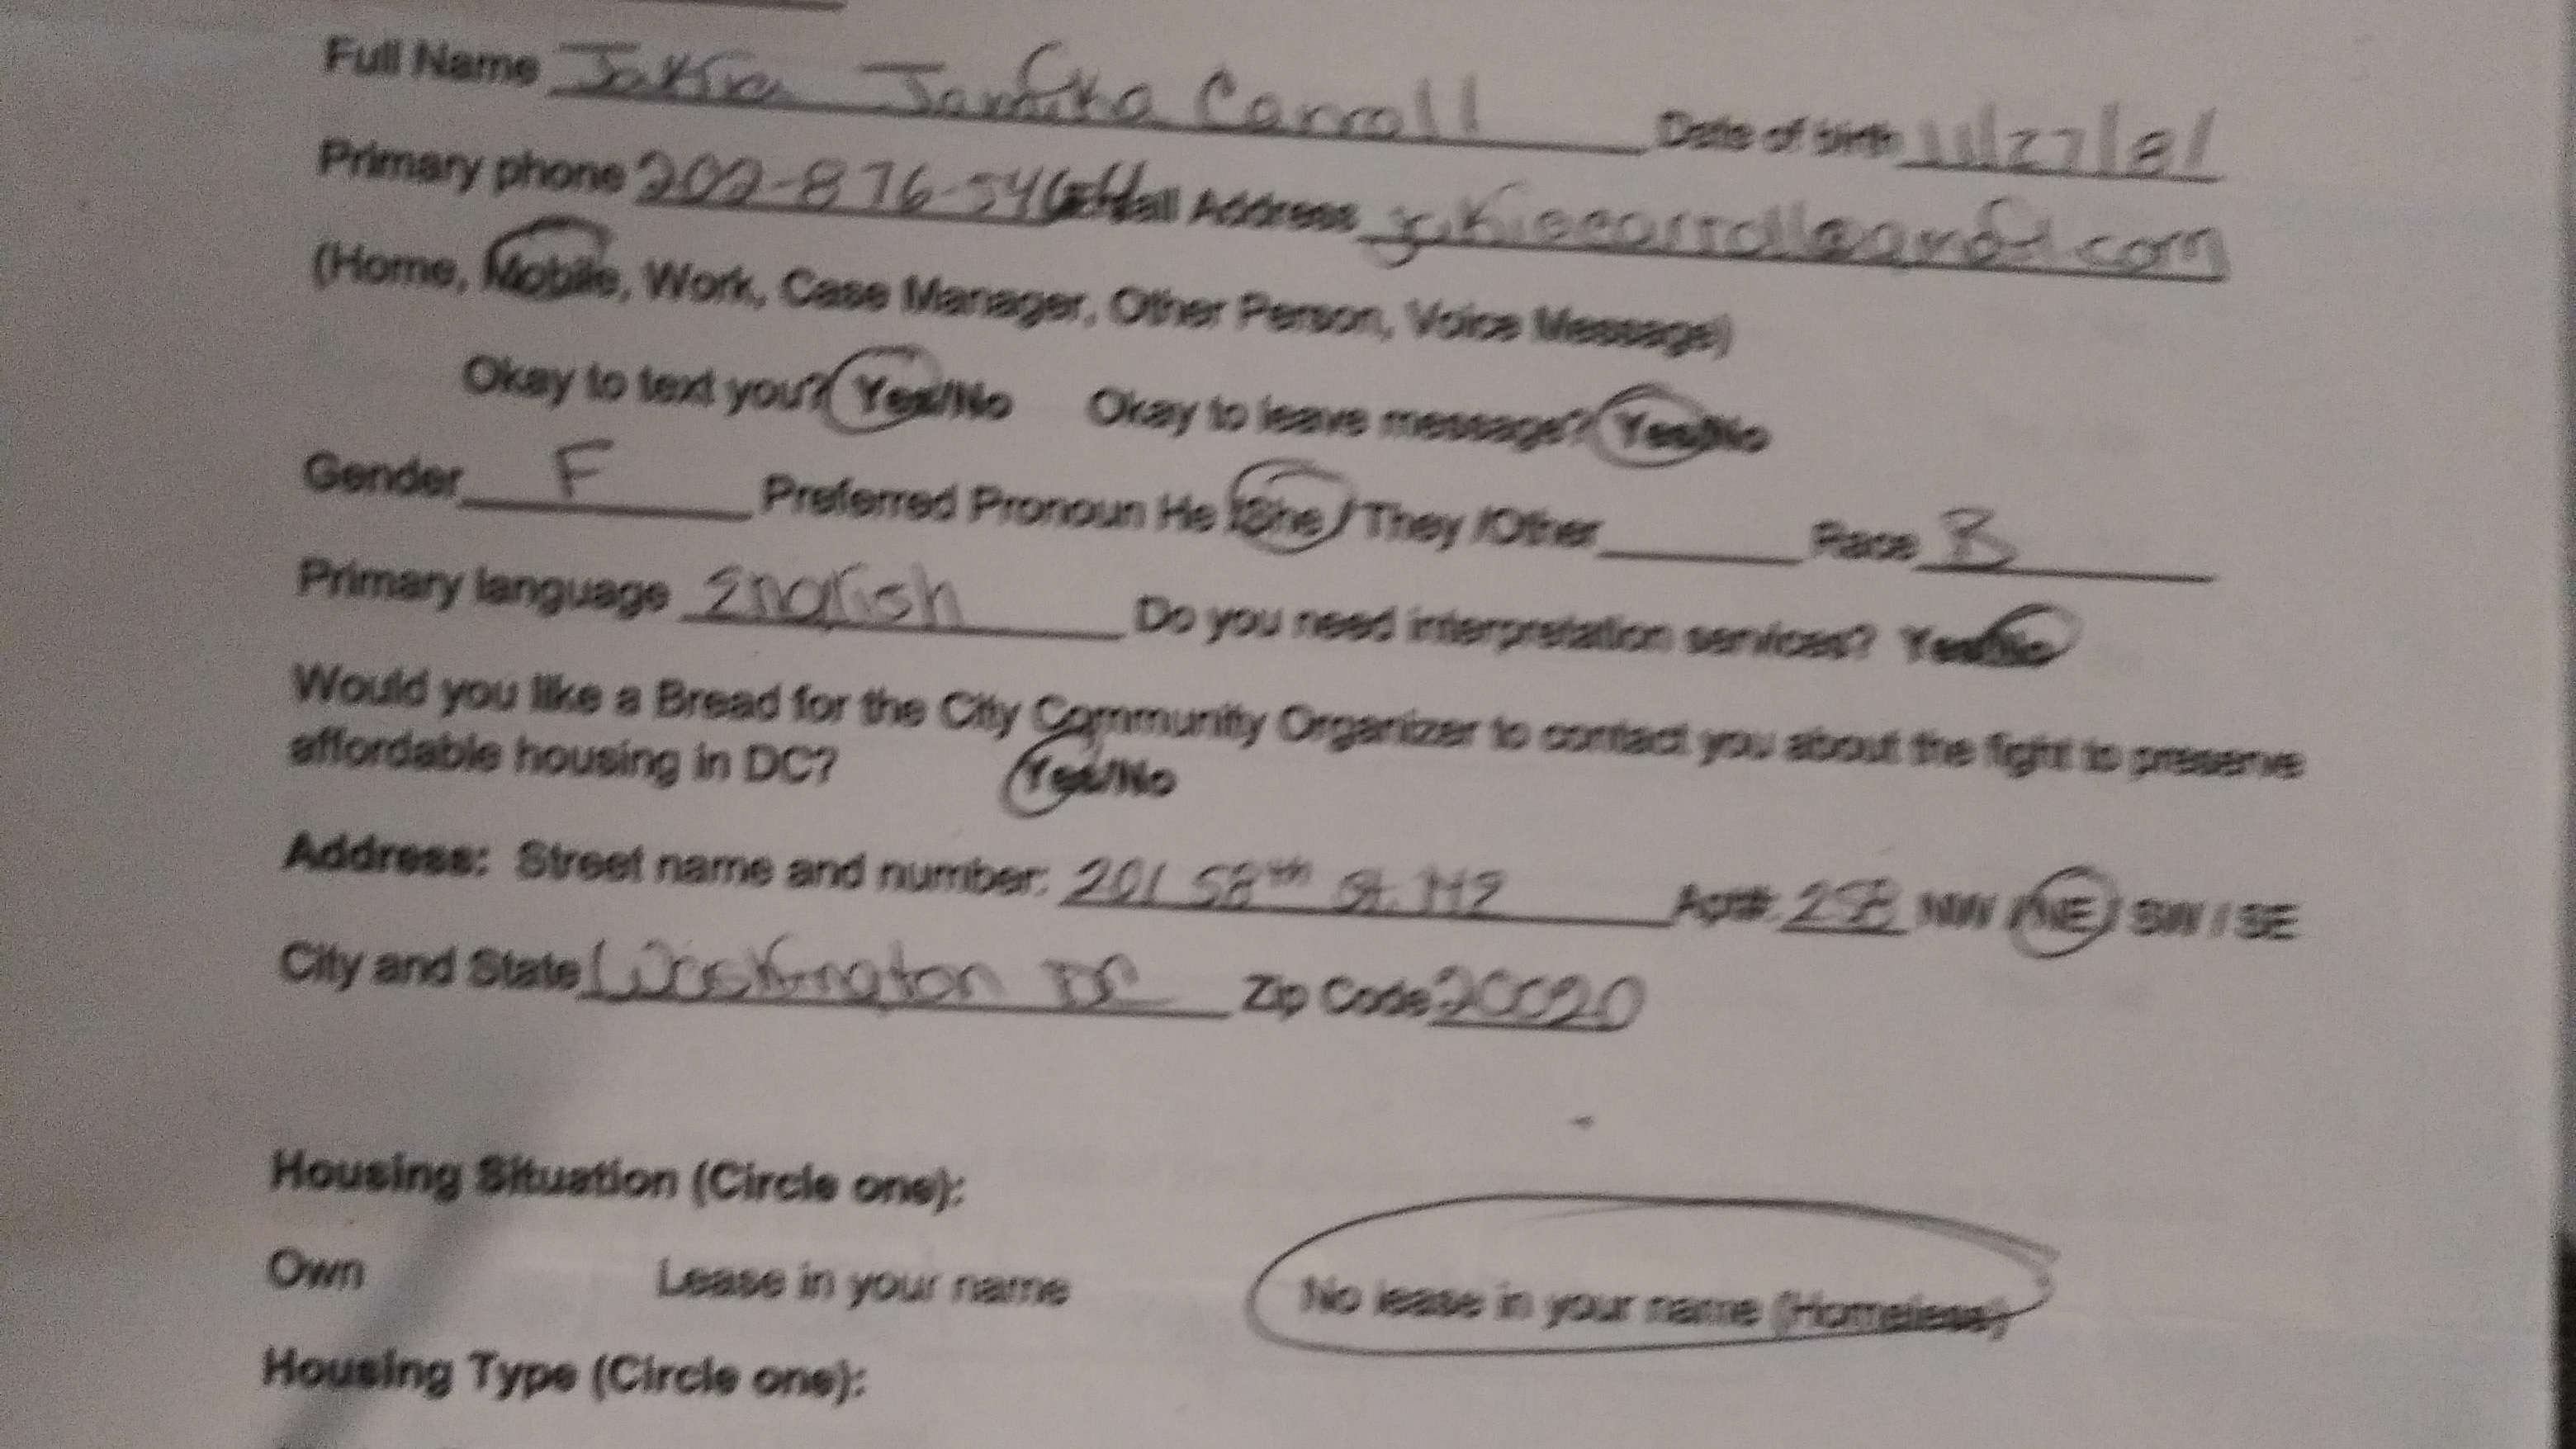 Full Name Jakia Carroll Date of birth 11/27/81
Primary phone 202-876-546 Email Address
(Home, Mobile, Work, Case Manager, Other Person, Voice Message)
Okay to text you? Yes/No Okay to leave message? Yes/No
Gender F Preferred Pronoun He /She / They /Other Race B
Primary language English Do you need interpretation services? Yes/No
Would you like a Bread for the City Community Organizer to contact you about the fight to preserve
affordable housing in DC? Yes/No
Address: Street name and number: 201 58th St. Apt#: NW / NE / SW / SE
City and State Washington DC Zip Code 20020
Housing Situation (Circle one):
Own Lease in your name No lease in your name (Homeless)
Housing Type (Circle one):